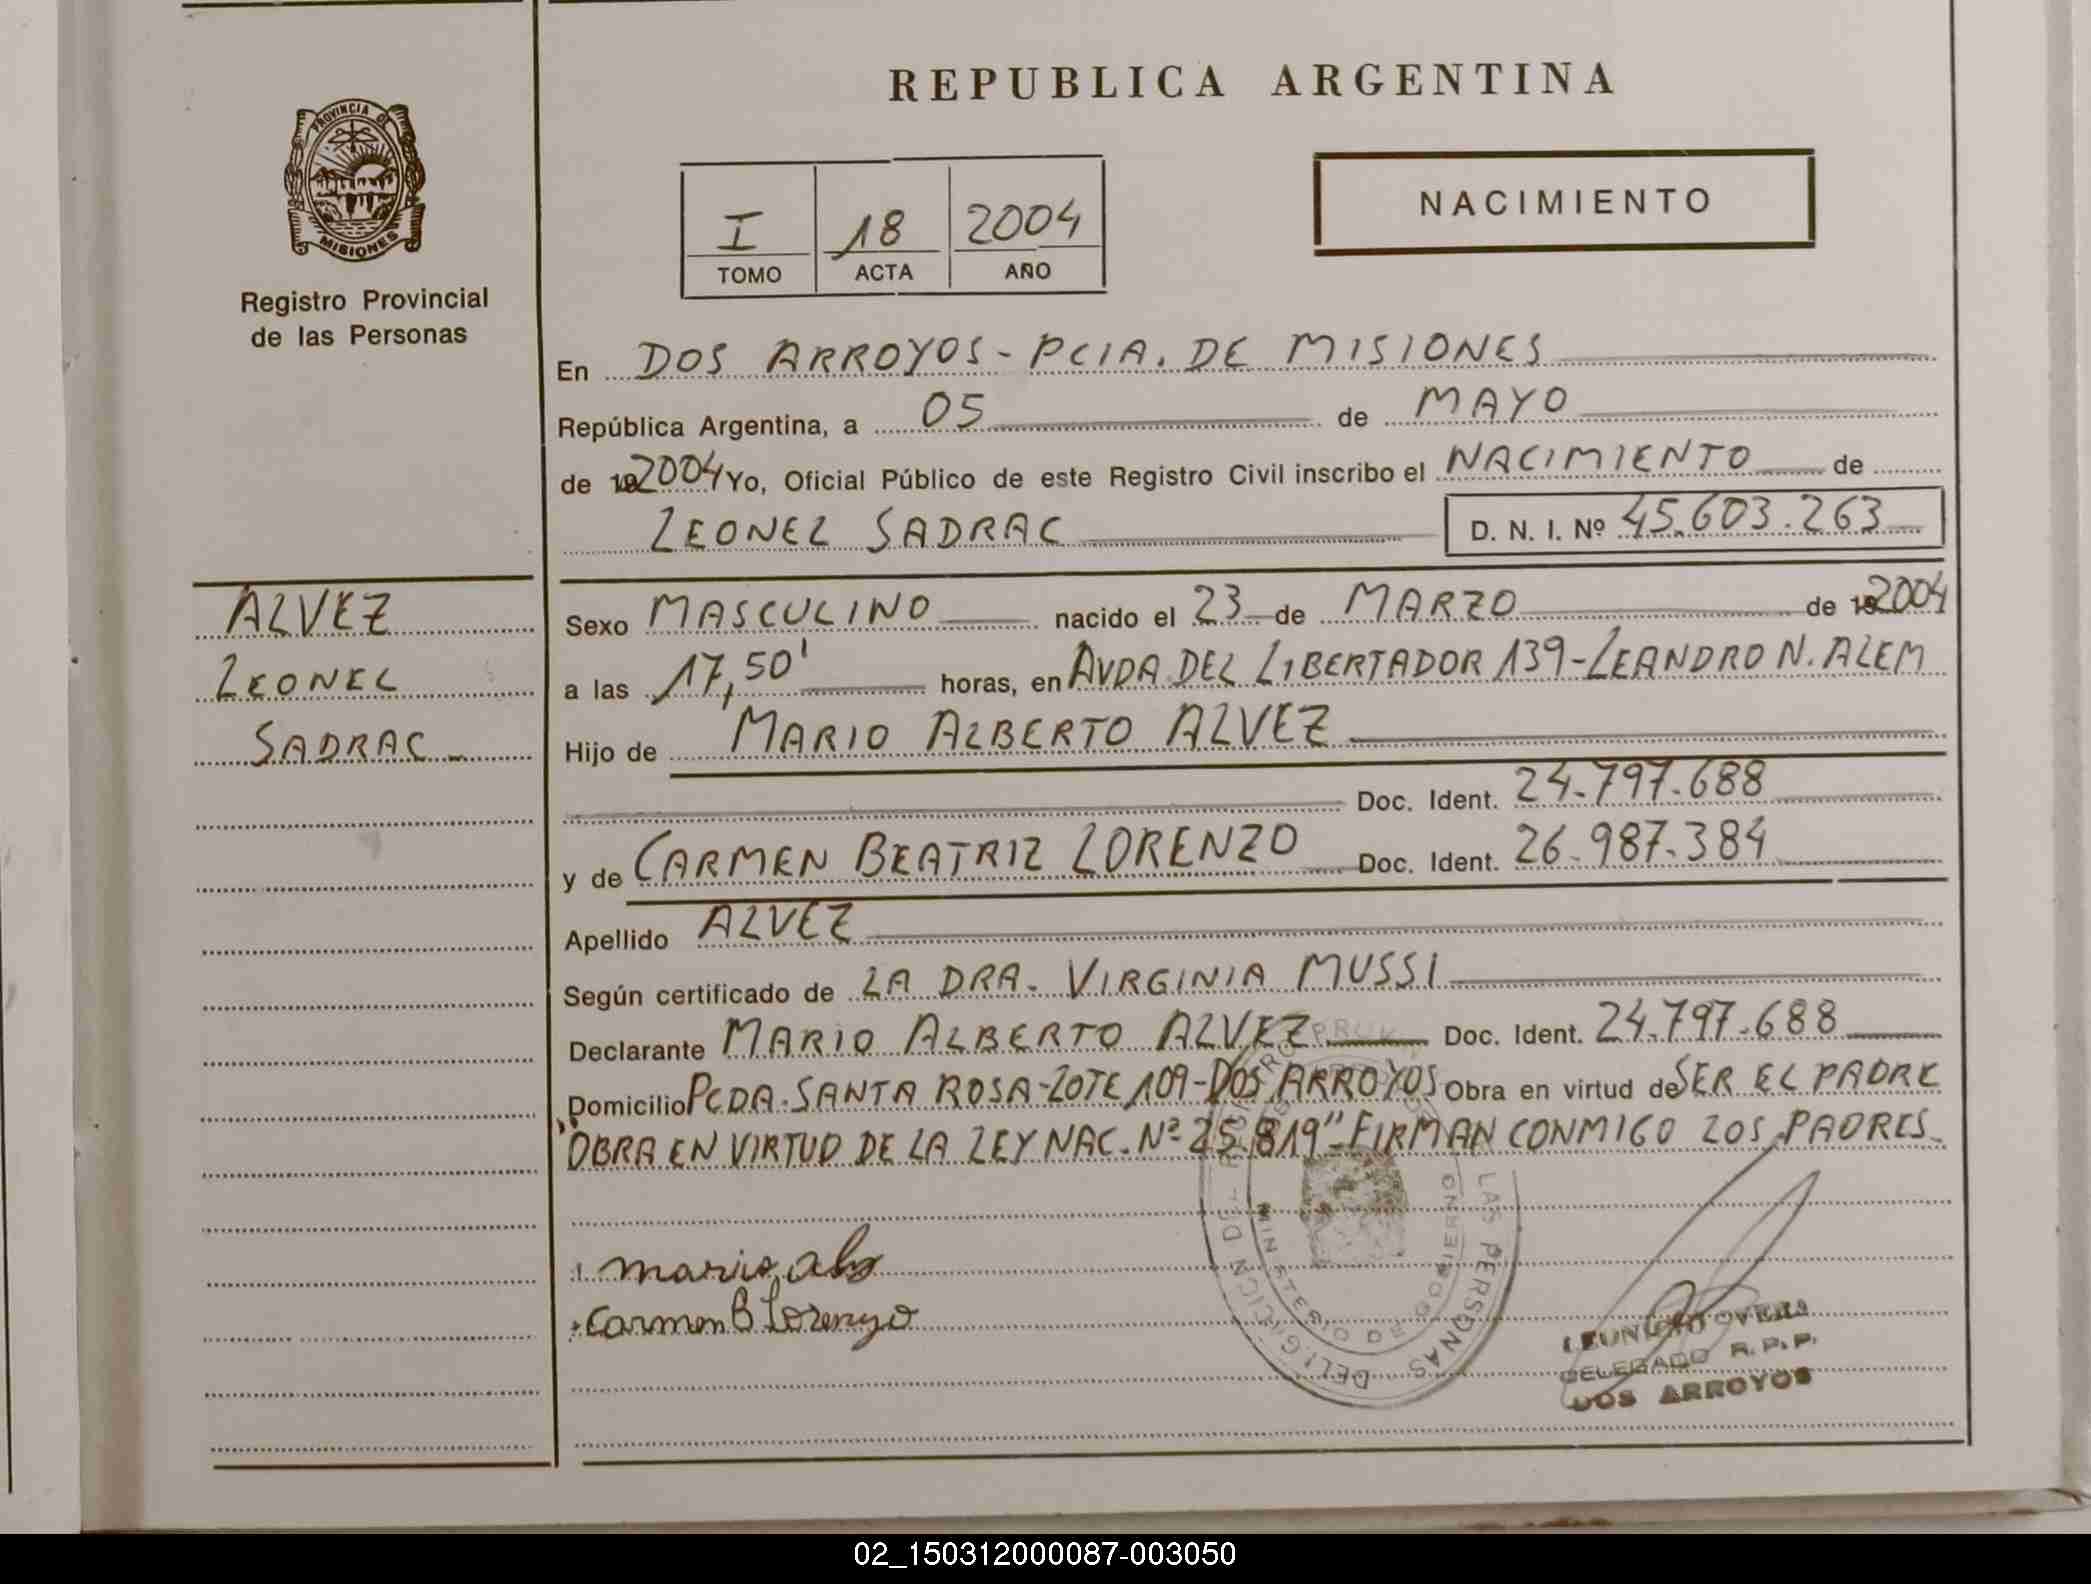 REPUBLICA ARGENTINA
PROVINCIA DE
MISIONES
Registro Provincial
de las Personas
I 18 2004
TOMO ACTA AÑO
NACIMIENTO
En DOS ARROYOS - PCIA. DE MISIONES
República Argentina, a 05 de MAYO
de 19 2004 Yo, Oficial Público de este Registro Civil inscribo el NACIMIENTO de
LEONEL SADRAC D. N. I. Nº 45.603.263
ALVEZ
LEONEL
SADRAC
Sexo MASCULINO nacido el 23 de MARZO de 19 2004
a las 17,50' horas, en AVDA DEL LIBERTADOR 139-LEANDRO N. ALEM
Hijo de MARIO ALBERTO ALVEZ
Doc. Ident. 24.797.688
y de CARMEN BEATRIZ LORENZO Doc. Ident. 26.987.384
Apellido ALVEZ
Según certificado de LA DRA. VIRGINIA MUSSI
Declarante MARIO ALBERTO ALVEZ Doc. Ident. 24.797.688
Domicilio PCDA. SANTA ROSA-LOTE 109-DOS ARROYOS Obra en virtud de SER EL PADRE
"OBRA EN VIRTUD DE LA LEY NAC. Nº 25.819" FIRMAN CONMIGO LOS PADRES
mario
Carmen B Lorenzo
LAS PERSONAS
MINISTERIO DE GOBIERNO
OVERA
DELEGADO R.P.P.
DOS ARROYOS
02_150312000087-003050